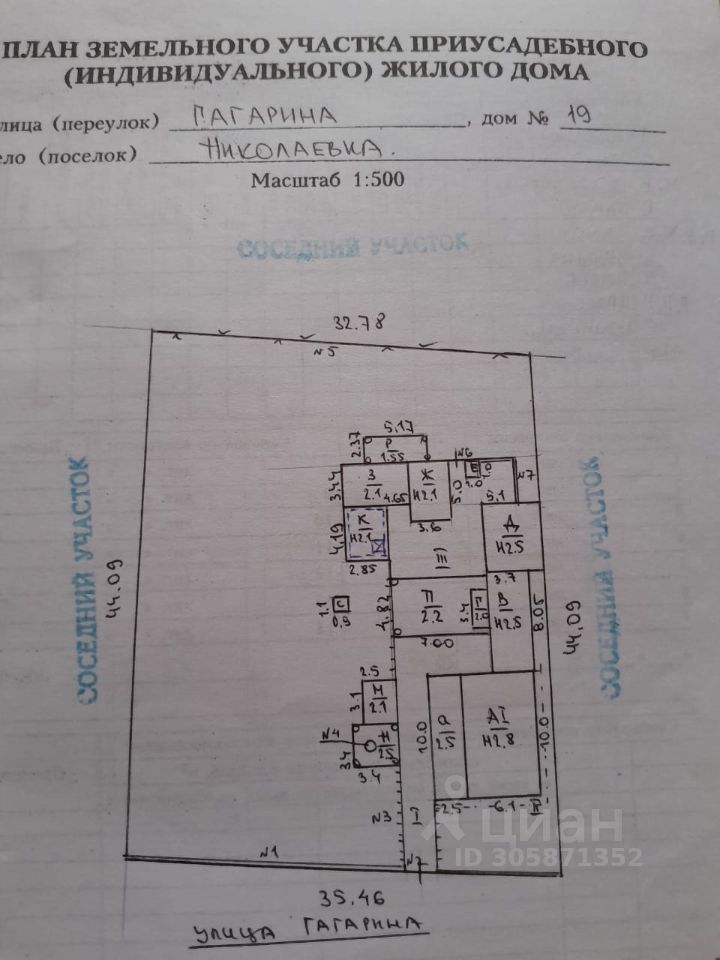 ПЛАН ЗЕМЕЛЬНОГО УЧАСТКА ПРИУСАДЕБНОГО
(ИНДИВИДУАЛЬНОГО) ЖИЛОГО ДОМА
лица (переулок) ГАГАРИНА, дом № 19
ело (поселок) НИКОЛАЕВКА.
Масштаб 1:500
СОСЕДНИЙ УЧАСТОК
32.78
№5
5.17
2.37
Р
1.55
№6
3.44
З
2.1
4.65
Ж
Н2.1
5.0
1.0
1.0
№7
5.1
4.19
К
Н2.1
3.6
Д
Н2.5
III
2.85
3.7
СОСЕДНИЙ УЧАСТОК
44.09
1.1
С
0,9
4.82
П
2.2
3.4
Г
2.0
В
Н2.8
8.05
44.09
СОСЕДНИЙ УЧАСТОК
7.00
2.5
3.1
Н
2.1
№4
3.4
Н
2.5
3.4
10.0
Р
2.5
АI
Н2.8
10.0
№3
I
2.5
6.1
циан
ID 305871352
№1
№2
35.46
УЛИЦА ГАГАРИНА